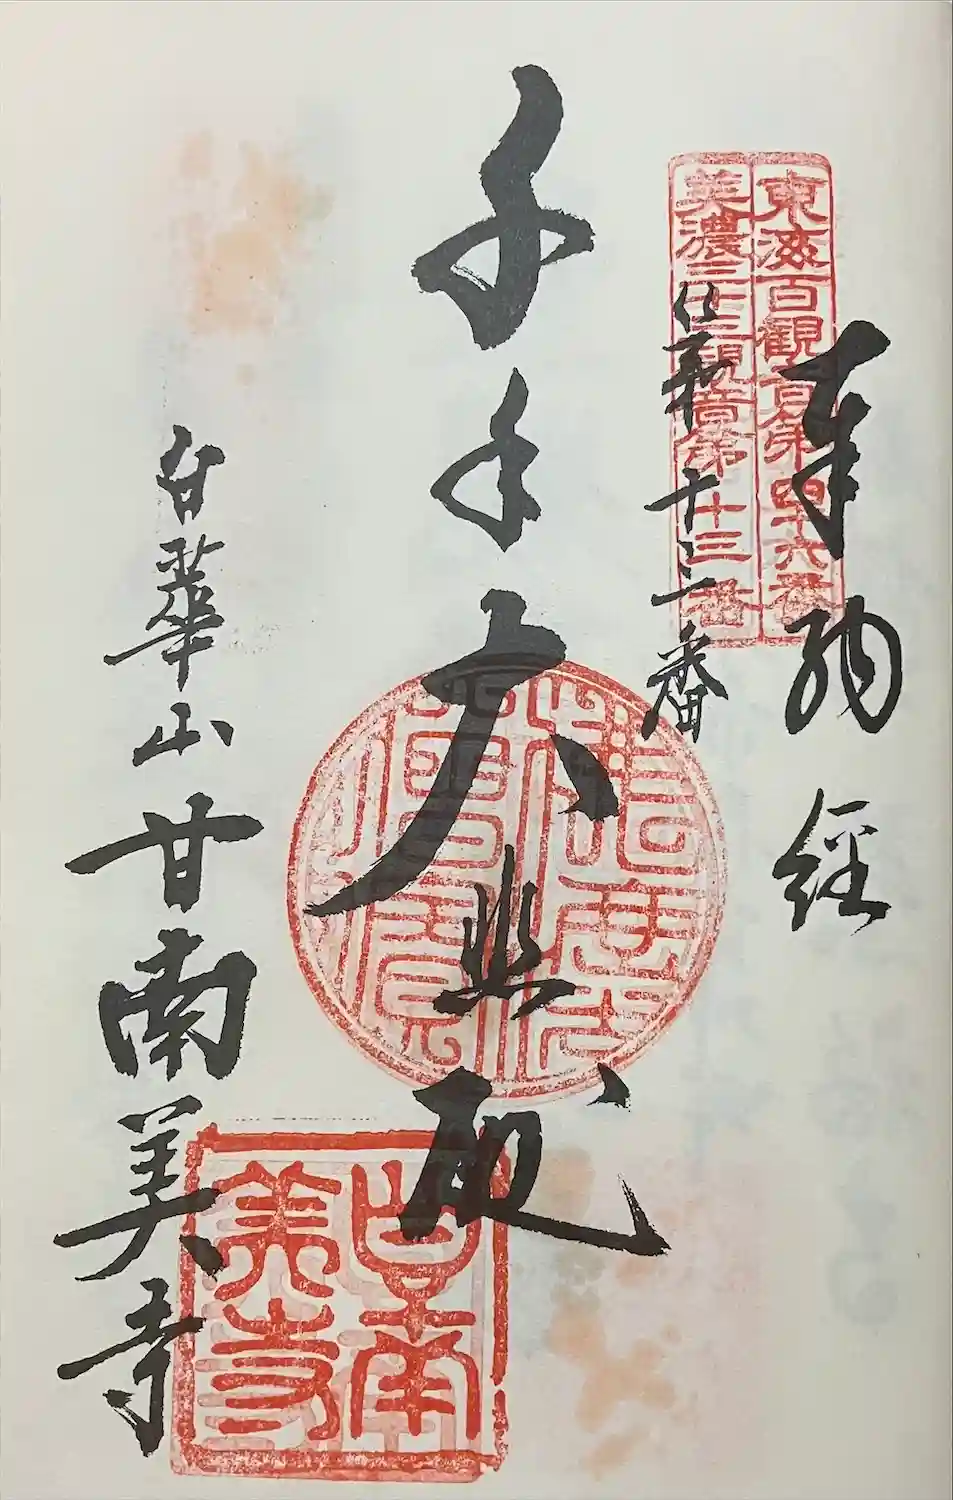 奉納経
東海百観音第四十六番
美濃三十三観音第十三番
十三番
千手大悲殿
白華山甘南美寺
甘南美寺